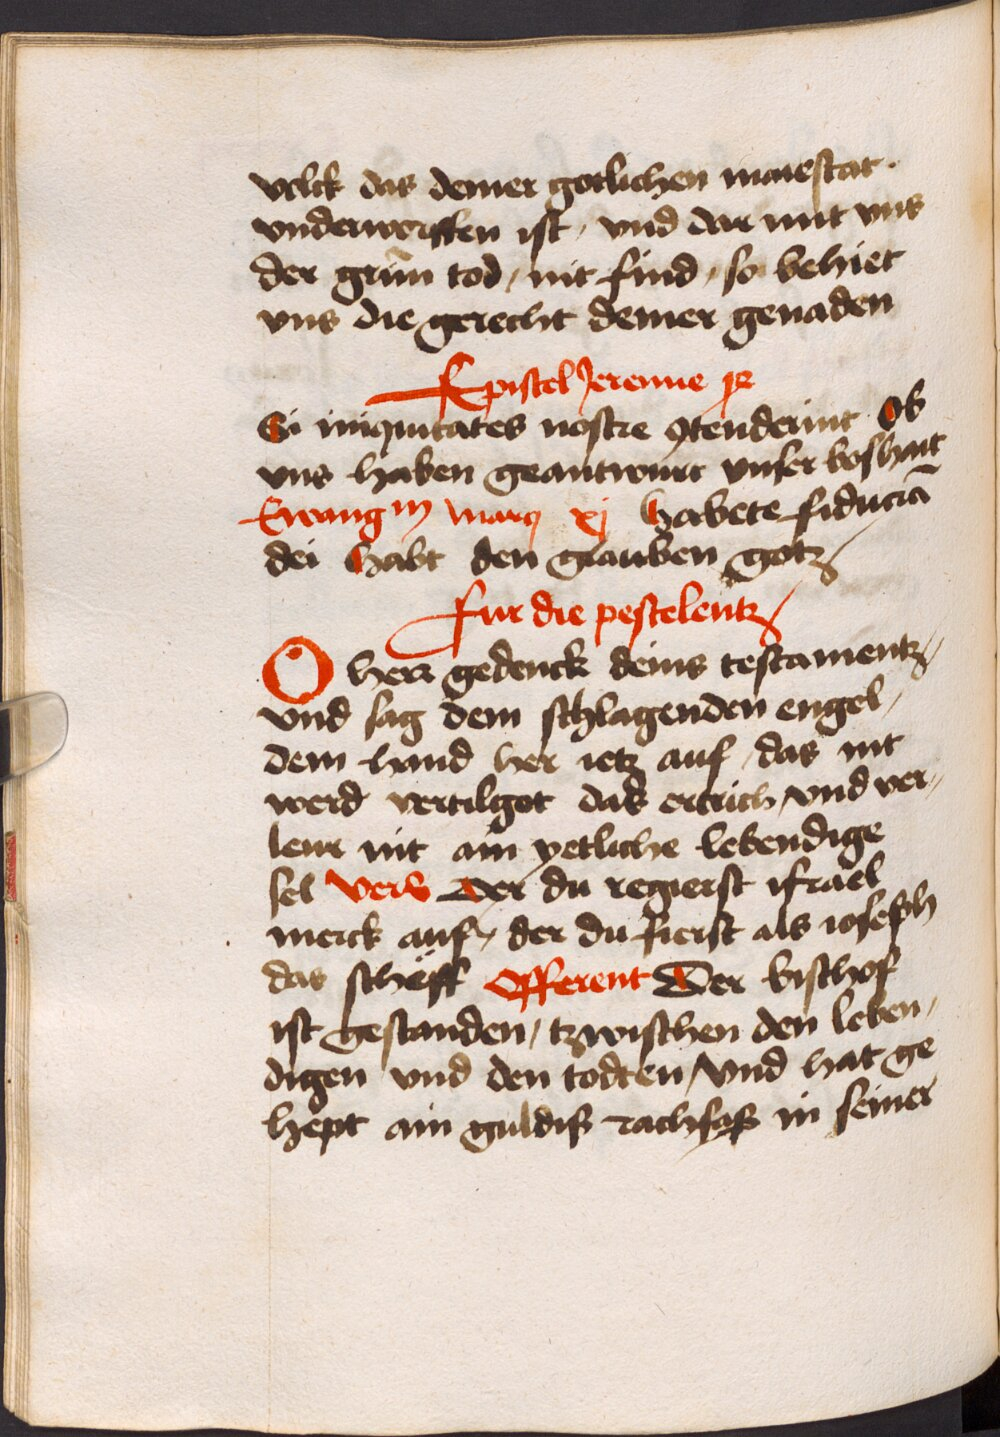 volck das deiner gotlichen maiestat.
vnderworffen ist / vnd dar mit vns
der grim̄ tod / nit find / so behiet
vns die gerecht deiner genaden
Epistel Jeremie
Si iniquitates nostre ꝯtenderint Ob
vns haben geantwurt vnser boshait
Ewangm marci xj habete fiduciā
dei habt den glauben gotz
fur die pestelentz
O herr gedenck deins testamentz //
vnd sag dem schlagenden engel /
dem hand her ietz auf / das nit
werd vertilgot das ertrich / vnd ver //
leur nit ain yetliche lebendige
sel vers Der du regierst israel
merck auf / der du fierst als ioseph
das scheff Offerent Der bischof
ist gestanden / tzwischen den leben /
digen vnd den todten / vnd hat ge
hept ain guldis rachfas in seiner